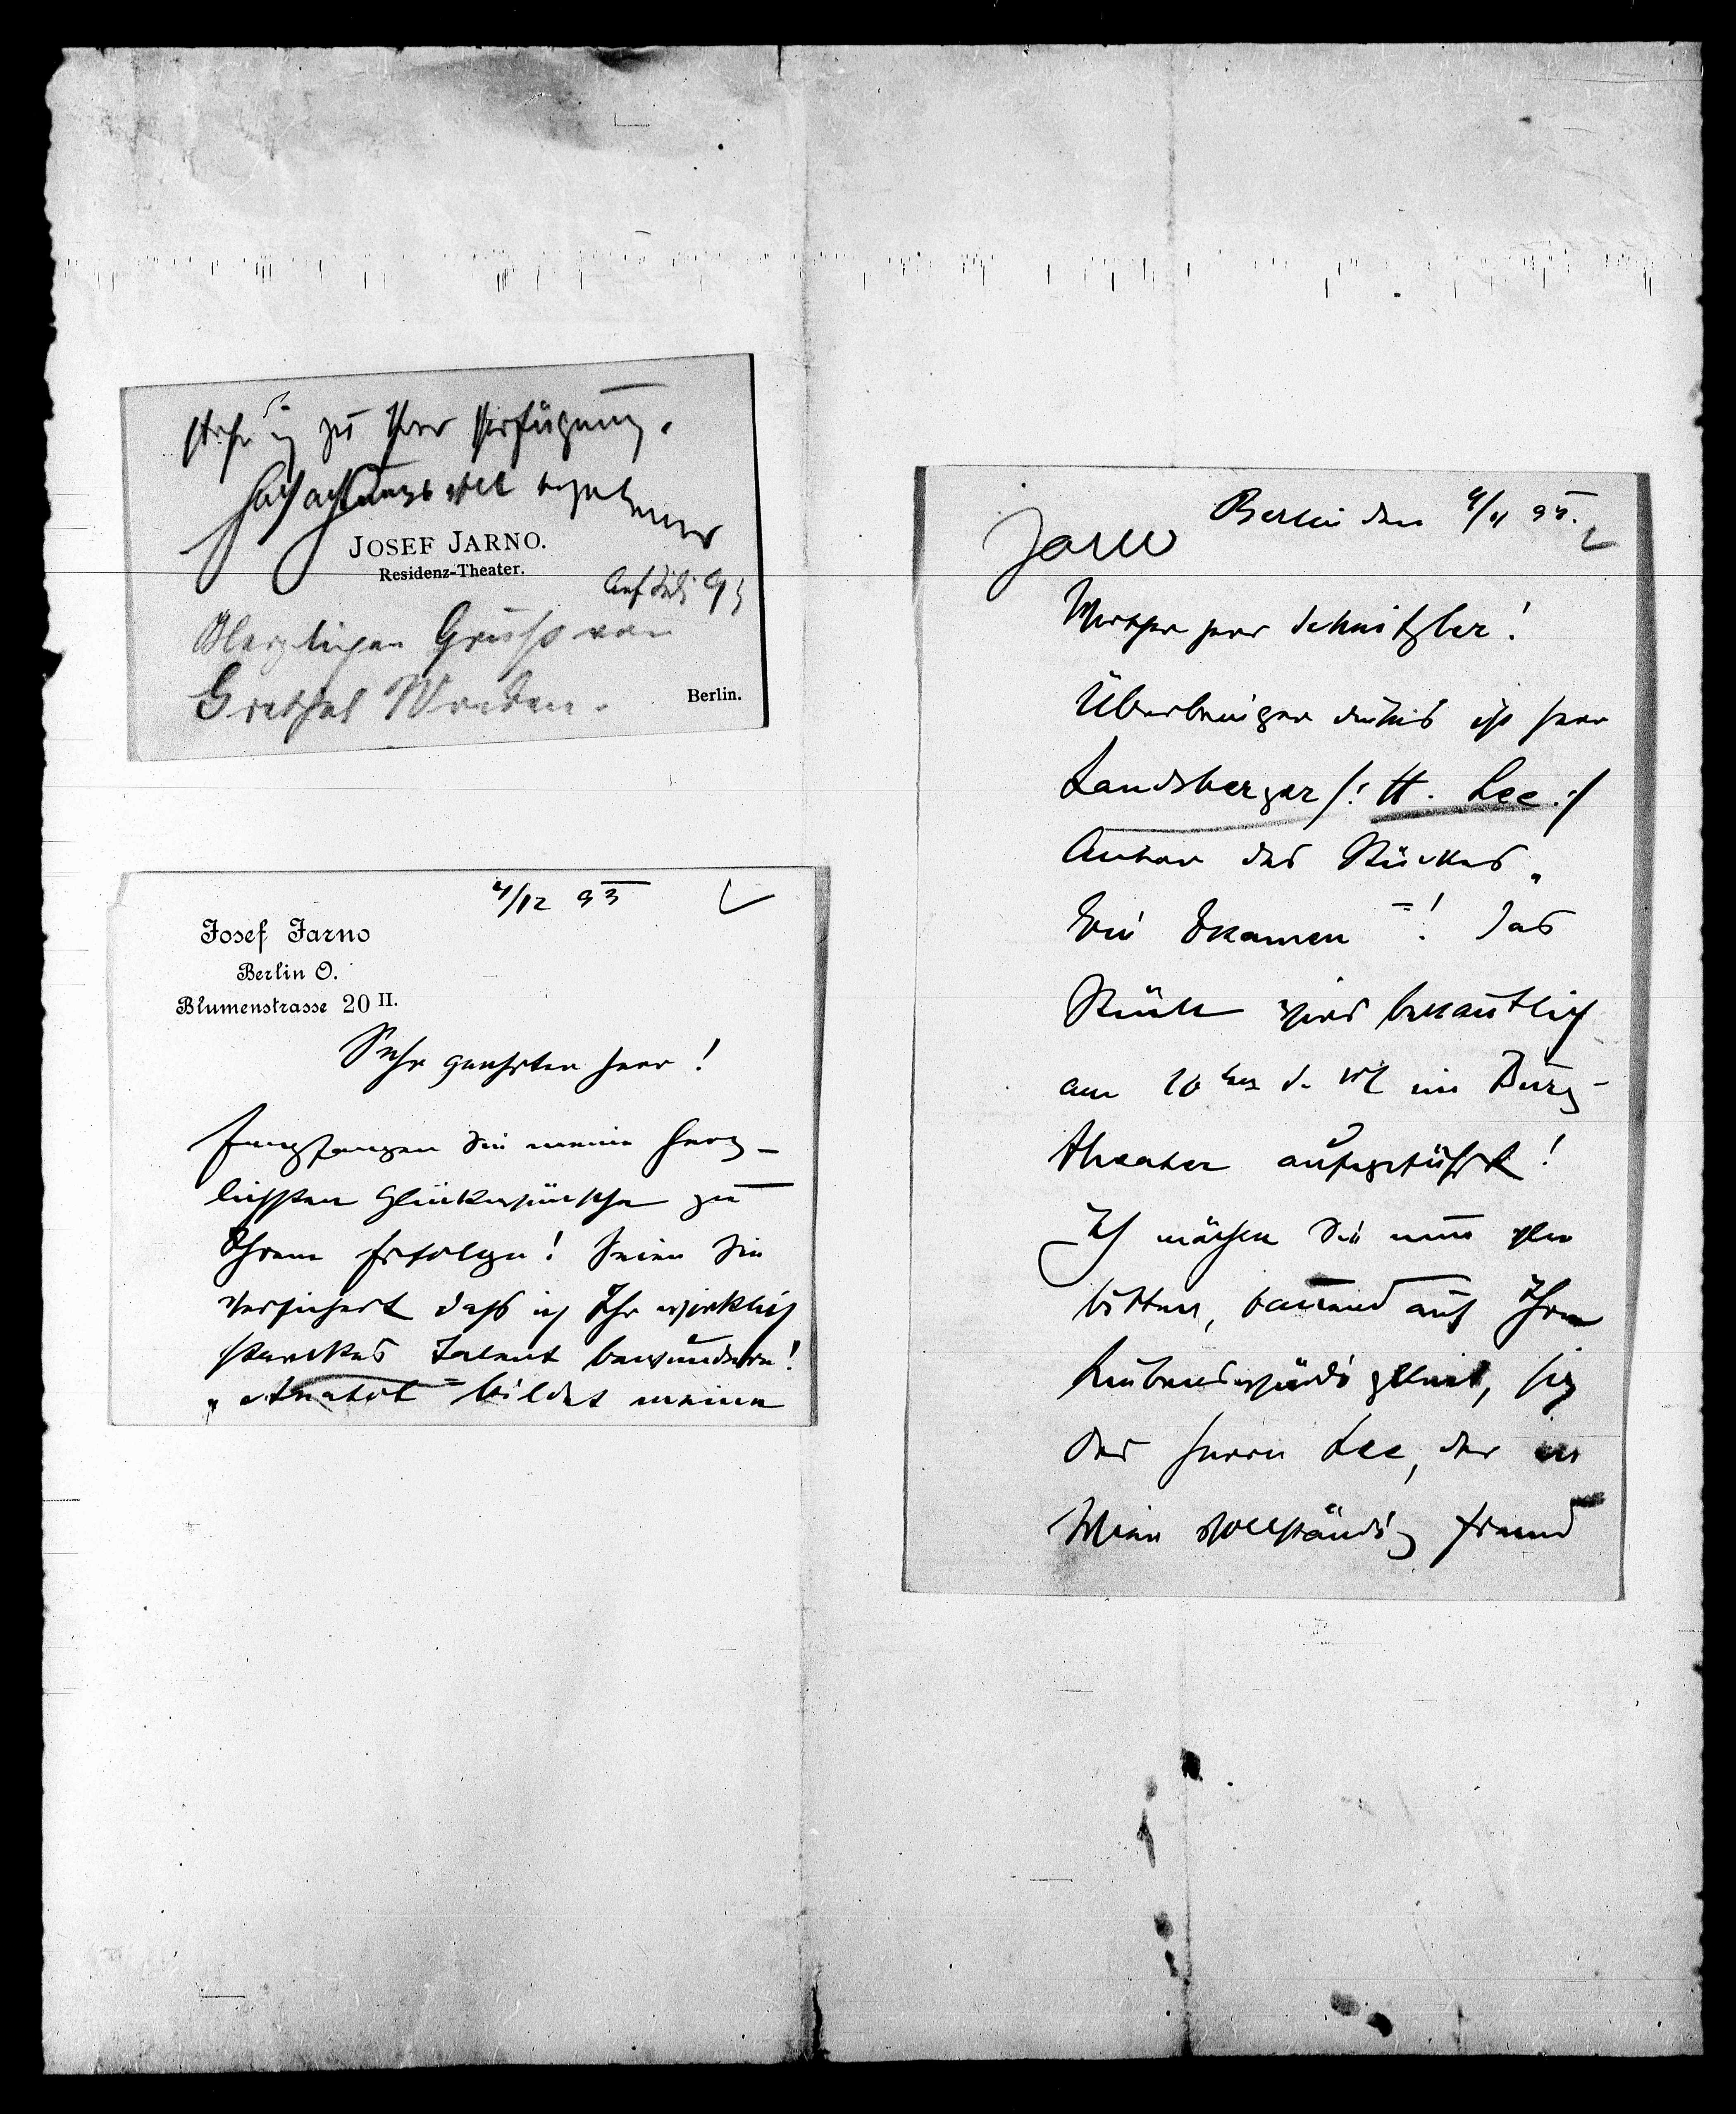 stehe ich zu Ihrer Verfügung.
Hochachtungsvoll ergebener
JOSEF JARNO.
Residenz-Theater.
Anf Juli 93
Herzlichen Gruß von
Gretchen
Berlin.
4/12 93
Josef Jarno
Berlin O.
Blumenstrasse 20 II.
Sehr geehrter Herr!
Empfangen Sie meine herz-
lichsten Glückwünsche zu
Ihrem Erfolge! Seien Sie
versichert daß ich Ihr wirklich
starkes Talent bewundere!
„Anatol" bildet meine
Berlin den 4/11 94.
Jarno
Werther Herr Schnitzler!
Überbringer dieses ist Herr
Landsberger /: H. Lee :/
Autor des Stückes „
Ein Examen"! Das
Stück wird bekantlich
am 10ten d. M. im Burg-
theater aufgeführt!
Ich möchte Sie nun sehr
bitten, bauend auf Ihre
Liebenswürdigkeit, sich
des Herrn Lee, der in
Wien vollständig fremd